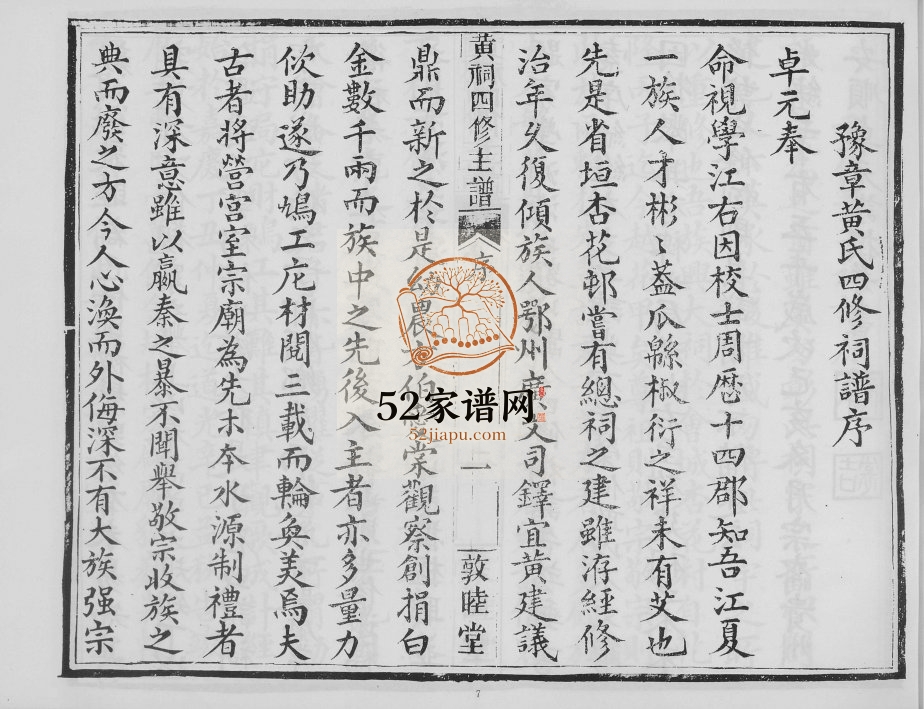 豫章黃氏四修祠譜序
卓元奉
命視學江右因校士周厯十四郡知吾江夏
一族人才彬〻葢瓜緜椒衍之祥未有艾也
先是省垣杏花邨嘗有總祠之建雖洊經修
治年夊復傾族人鄂州廣文司鐸宜黃建議
黄祠四修主譜
序
一
敦睦堂
鼎而新之於是農伯棠觀察創捐白
金數千兩而族中之先後入主者亦多量力
佽助遂乃鳩工庀材閱三載而輪奐美焉夫
古者將營宮室宗廟為先木夲水源制禮者
具有深意雖以嬴秦之暴不聞舉敬宗收族之
典而廢之方今人心渙而外侮深不有大族强宗
52家谱网
52jiapu.com
7